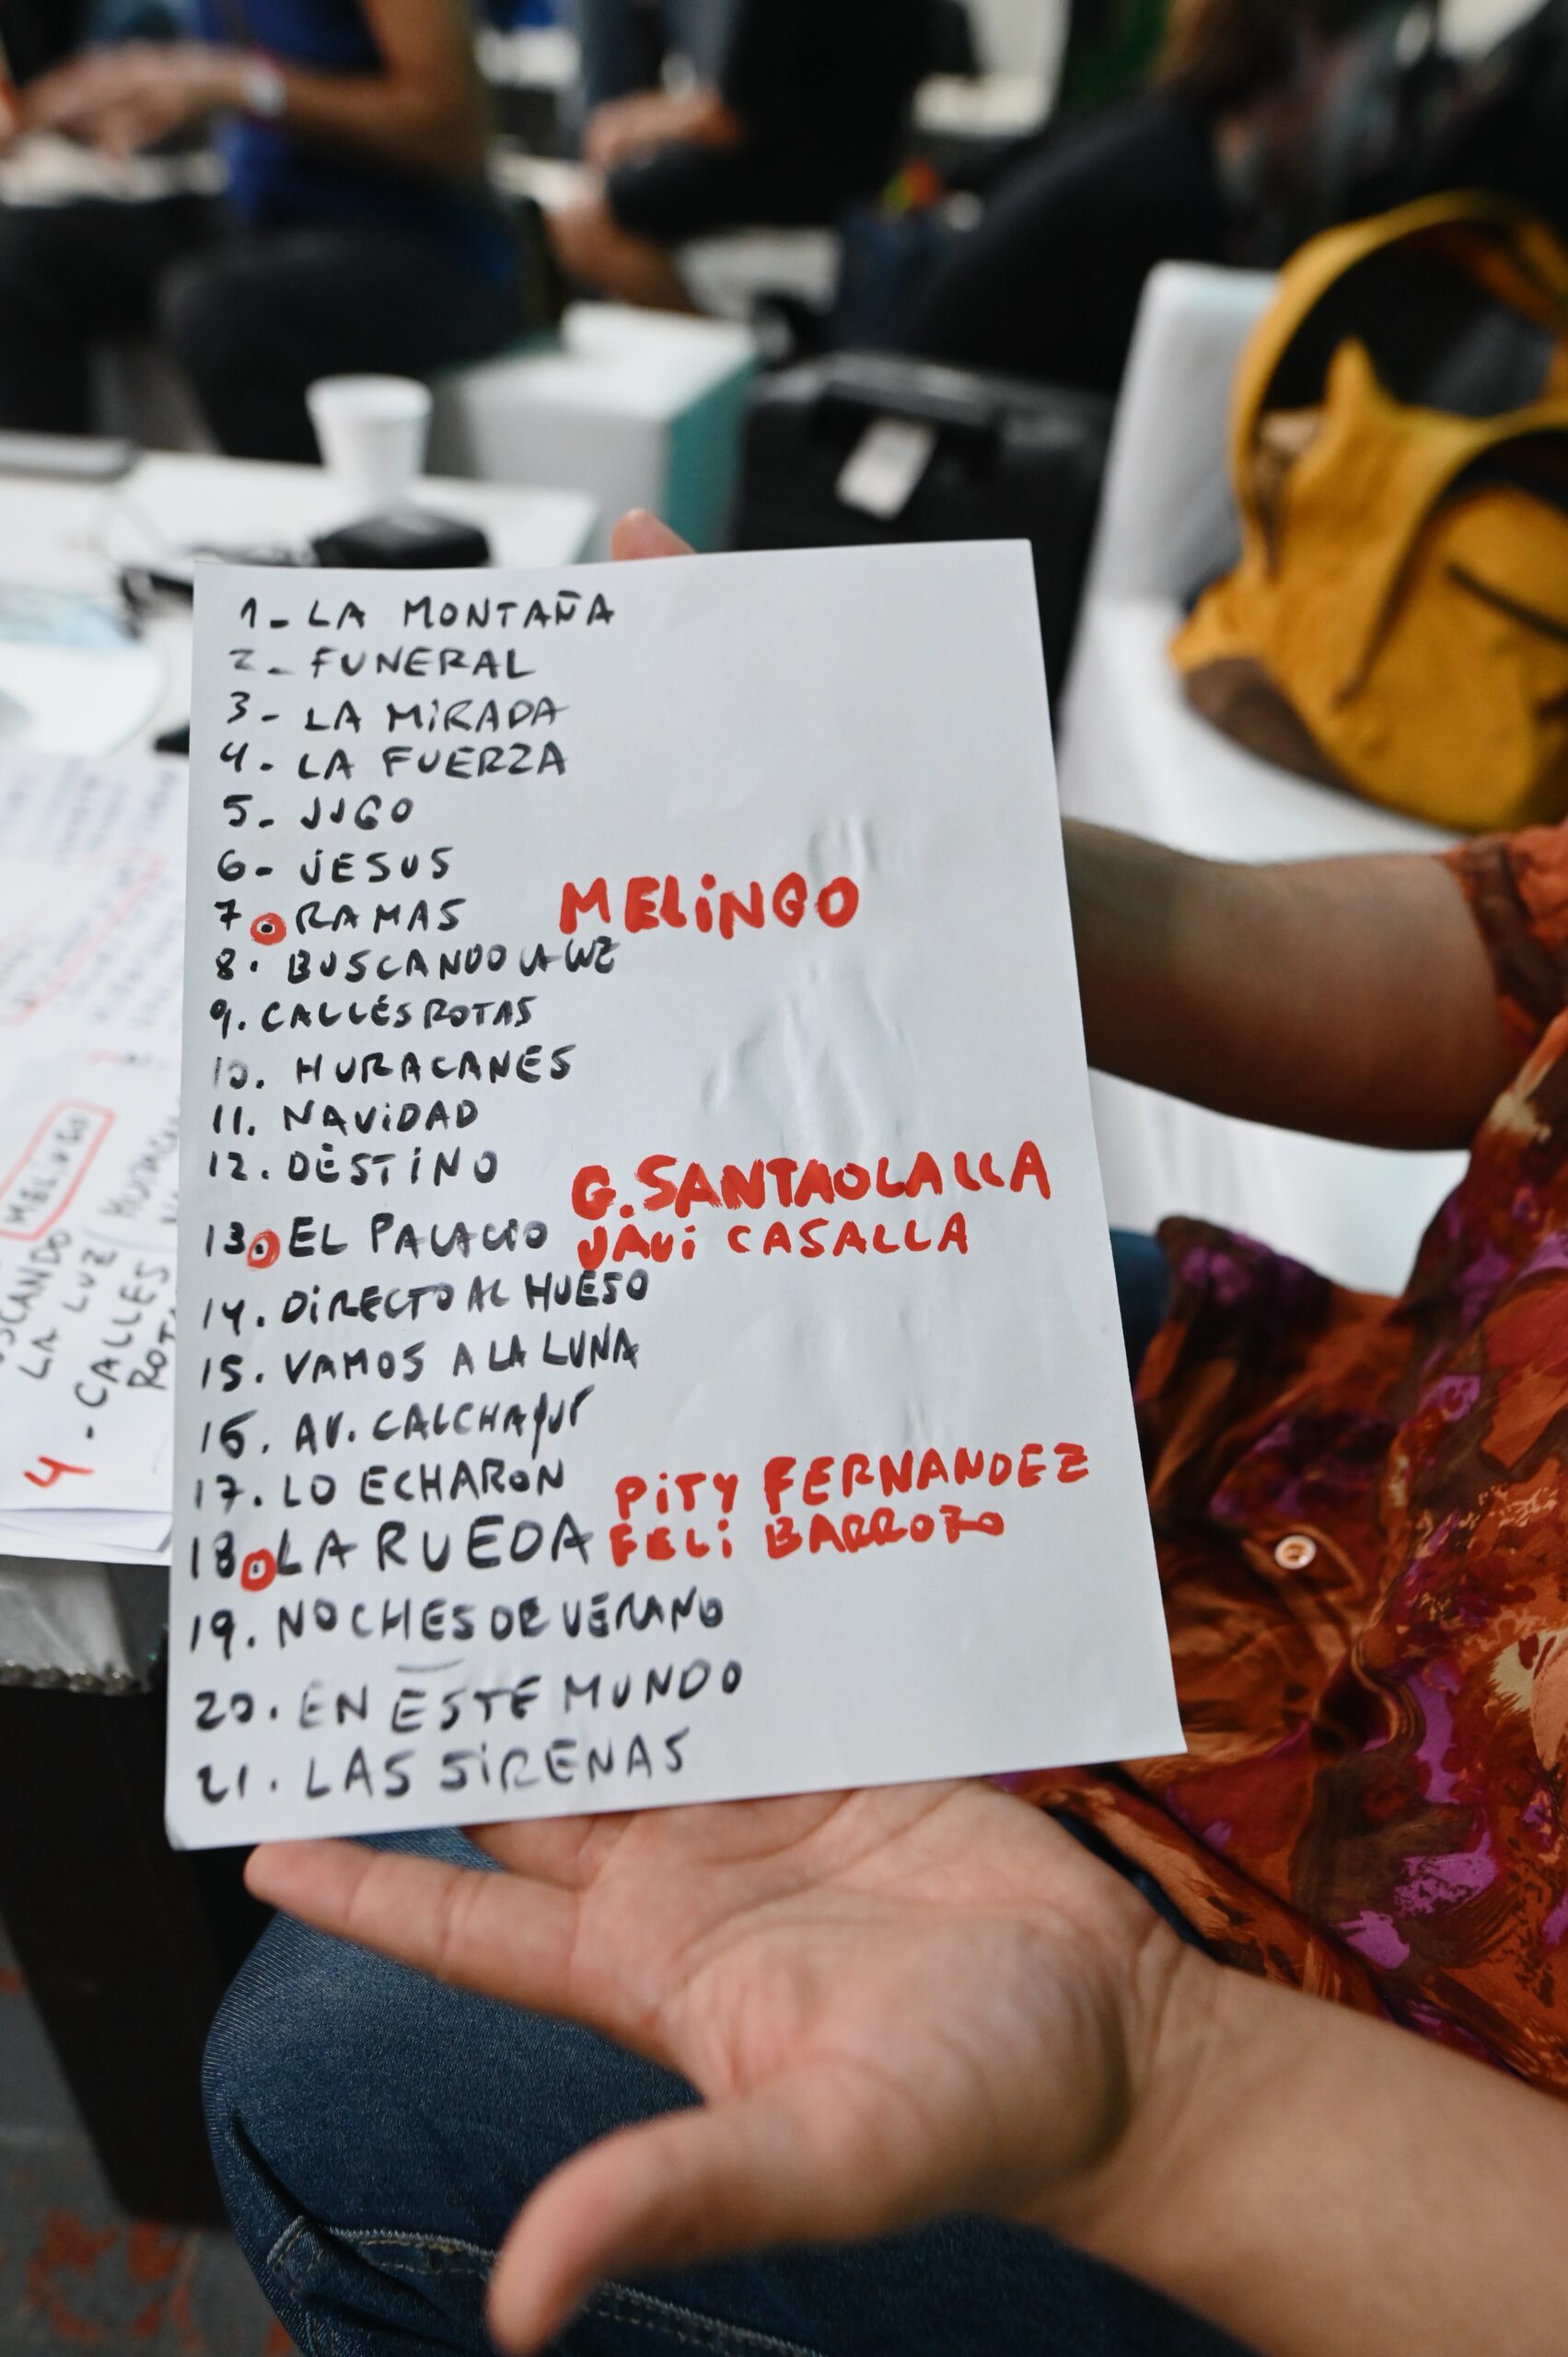 1- LA MONTAÑA
2- FUNERAL
3- LA MiRADA
4- LA FUERZA
5- JUGO
6- JESUS
7. RAMAS MELiNGO
8. BUSCANDO LA LUZ
9. CALLES ROTAS
10. HURACANES
11. NAViDAD
12. DESTiNO
G. SANTAOLALLA
13. EL PALACiO JAVi CASALLA
14. DiRECTO AL HUESO
15. VAMOS A LA LUNA
16. AV. CALCHAQUI
17. LO ECHARON PiTY FERNANDEZ
18. LA RUEDA FELi BARROZO
19. NOCHES DE VERANO
20. EN ESTE MUNDO
21. LAS SiRENAS
MELiNGO
LA LUZ
4 - CALLES